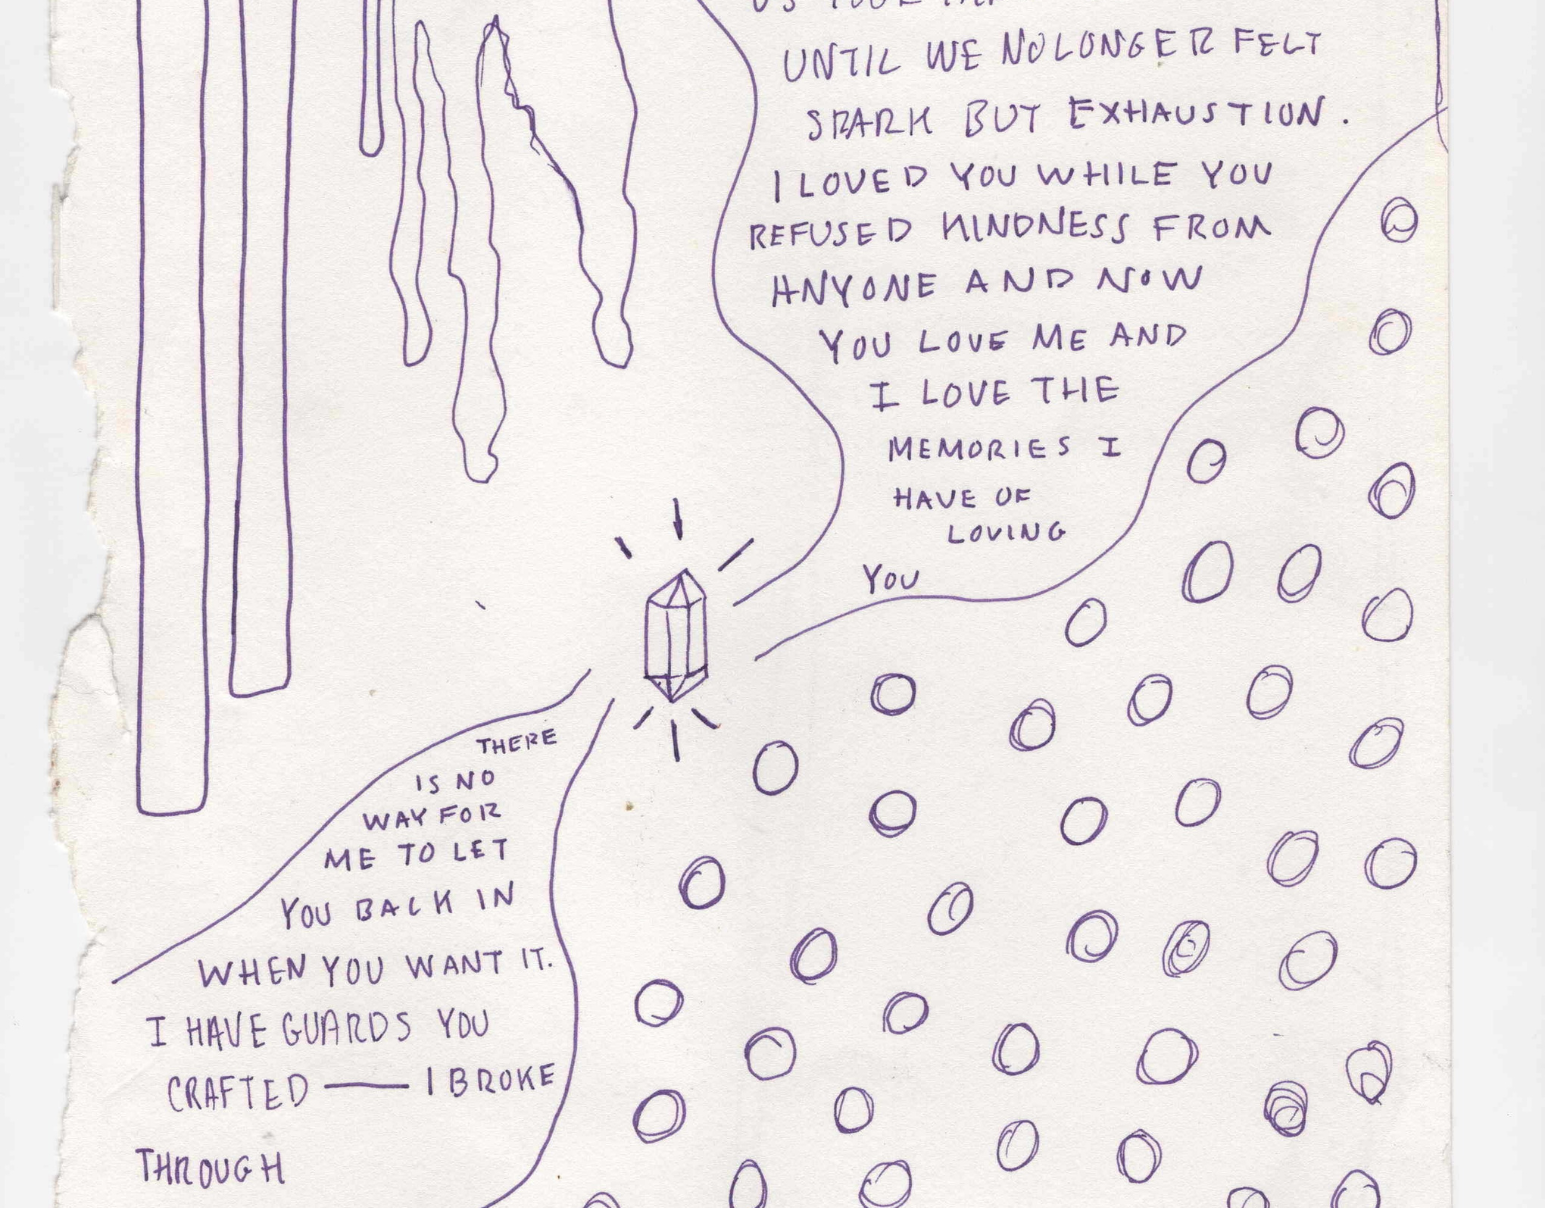 UNTIL WE NO LONGER FELT
SPARK BUT EXHAUSTION.
I LOVED YOU WHILE YOU
REFUSED KINDNESS FROM
ANYONE AND NOW
YOU LOVE ME AND
I LOVE THE
MEMORIES I
HAVE OF
LOVING
YOU
THERE
IS NO
WAY FOR
ME TO LET
YOU BACK IN
WHEN YOU WANT IT.
I HAVE GUARDS YOU
CRAFTED — I BROKE
THROUGH